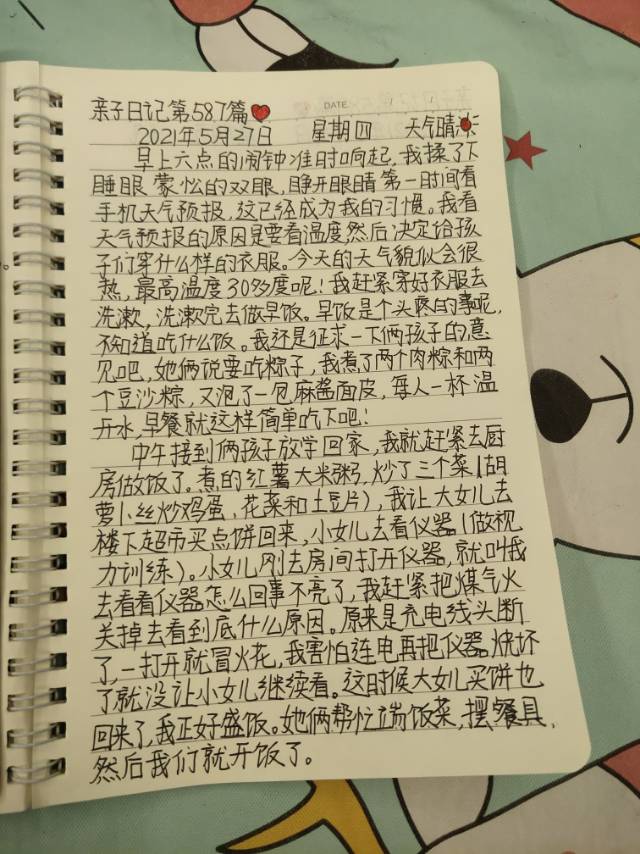 DATE: / /
亲子日记第587篇
2021年5月27日 星期四 天气晴
早上六点的闹钟准时响起,我揉了下
睡眼蒙忪的双眼,睁开眼睛第一时间看
手机天气预报,这已经成为我的习惯。我看
天气预报的原因是要看温度,然后决定给孩
子们穿什么样的衣服。今天的天气貌似会很
热,最高温度30多度呢!我赶紧穿好衣服去
洗漱,洗漱完去做早饭。早饭是个头疼的事呢,
不知道吃什么饭。我还是征求一下俩孩子的意
见吧,她俩说要吃粽子,我煮了两个肉粽和两
个豆沙粽,又泡了一包麻酱面皮,每人一杯温
开水,早餐就这样简单吃下吧!
中午接到俩孩子放学回家,我就赶紧去厨
房做饭了。煮的红薯大米粥,炒了三个菜(胡
萝卜丝炒鸡蛋、花菜和土豆片),我让大女儿去
楼下超市买点饼回来,小女儿去看仪器(做视
力训练)。小女儿刚去房间打开仪器,就叫我
去看看仪器怎么回事不亮了,我赶紧把煤气火
关掉去看到底什么原因。原来是充电线头断
了,一打开就冒火花,我害怕连电再把仪器烧坏
了就没让小女儿继续看。这时候大女儿买饼也
回来了,我正好盛饭。她俩帮忙端饭菜,摆餐具,
然后我们就开饭了。